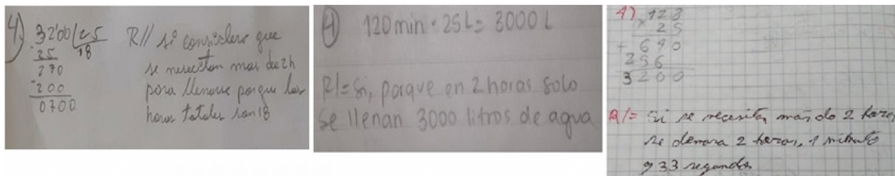 4) 3200 25
25 18
270
200
0700
R// si considero que
se necesitan mas de 2h
para llenarse porque las
horas totales son 18
4) 120 min · 25 L = 3000 L
R/= Si, porque en 2 horas solo
se llenan 3000 litros de agua
4) 128
× 25
+ 640
256
3200
R/= Si se necesita más de 2 horas
se demora 2 horas, 1 minuto
y 33 segundos